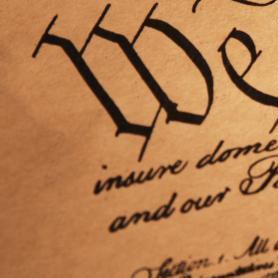 We
insure dome
and our P
Section 1. All